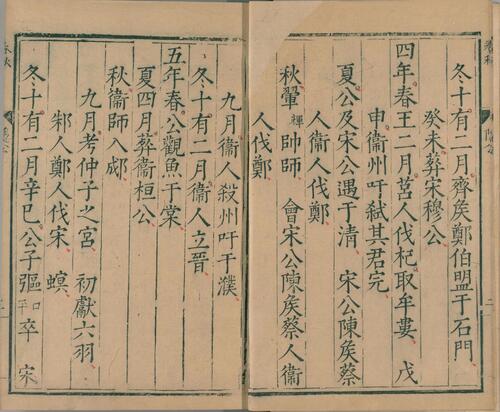 冬十有二月齊矦鄭伯盟于石門
癸未葬宋穆公
四年春王二月莒人伐杞取牟婁 戊
申衞州吁弑其君完
夏公及宋公遇于清 宋公陳矦蔡
人衞人伐鄭
秋翬 帥師 會宋公陳矦蔡人衞
人伐鄭
九月衞人殺州吁于濮
冬十有二月衞人立晉
五年春公觀魚于棠
夏四月葬衞桓公
秋衞師入郕
九月考仲子之宮 初獻六羽
邾人鄭人伐宋 螟
冬十有二月辛巳公子彄 卒 宋